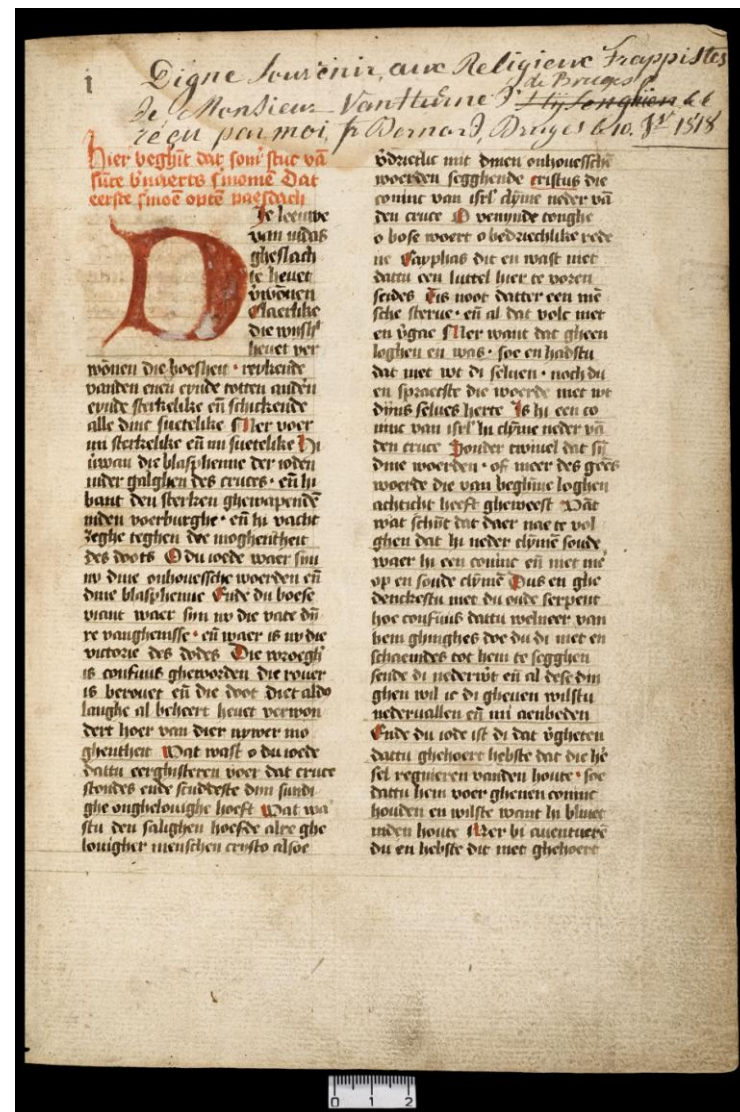 i
Digne Souvenir, aux Religieux Trappistes
de Bruges
de Monsieur VanHurne
reçu par moi, fr Bernard, Bruges le 10. 8br 1818
Hier beghīt dat som stuc vā
sūte b'naerts s'monē Dat
eerste s'moē optē paeschdach
Die leeuwe
van iudas
gheslach
te heuet
v'wonnen
Claerlike
die wijsh'
heuet ver
wōnen die boesheit · reykende
vanden enen eynde totten andēn
eynde sterkelike eñ schickende
alle dinc suetelike Mer voer
mi sterkelike eñ mi suetelike Hi
v'wan die blasphemie der ioden
inder galghen des cruces · eñ hi
bant den sterken ghewapendē
inden voerburghe · eñ hi vacht
zeghe teghen die moghentheit
des doots O du iode waer sijn
nv dine onhouessche woerden eñ
dine blasphemie Ende du boese
viant waer sijn nv die vate dijn
re vanghenisse · eñ waer is nv die
victorie des dodes Die wroegh'
is confuus gheworden die rouer
is berouet eñ die doot diet aldo
langhe al beheert heuet verwon
dert hoer van dier nywer mo
ghentheit Wat wast o du iode
dattu eerghisteren voer dat cruce
stondes ende scuddeste dijn sundi
ghe onghelouighe hoeft Wat wa
stu den salighen hoefde alre ghe
louigher menschen cristo alsoe
v'drietlic mit dinen onhouesschē
woerden segghende cristus die
coninc van isrl' clȳme neder vā
den cruce O venijnde tonghe
o bose woert o bedriechlike rede
ne Cayphas dit en wast niet
dattu een luttel hier te voren
seides Tis noot datter een mē
sche sterue · eñ al dat volc niet
en v'gae Mer want dat gheen
loghen en was · soe en hadstu
dat niet wt di seluen · noch du
en spraecste die woerde niet wt
dijns selues herte Is hi een co
ninc van isrl' hi clȳme neder vā
den cruce Sonder twiuel dat sijn
dine woerden · of meer des gees
woerde die van beghīne loghen
achticht heeft gheweest Wāt
wat schijnt dat daer nae te vol
ghen dat hi neder clȳmē soude
waer hi een coninc eñ niet mē
op en soude clȳmē Dus en ghe
denckestu niet du oude serpent
hoe confuus dattu welneer van
hem ghinghes doe du di niet en
schaemdes tot hem te segghen
seinde di nederwt eñ al dese din
ghen wil ic di gheuen wilstu
nederuallen eñ mi aenbeden
Ende du iode ist di dat v'gheten
dattu ghehoert hebste dat die hē
sel regnieren vanden houte · soe
dattu hem voer ghenen coninc
houden en wilste want hi bliuet
inden houte Mer bi auentuerē
du en hebste dit niet ghehoert
0 1 2